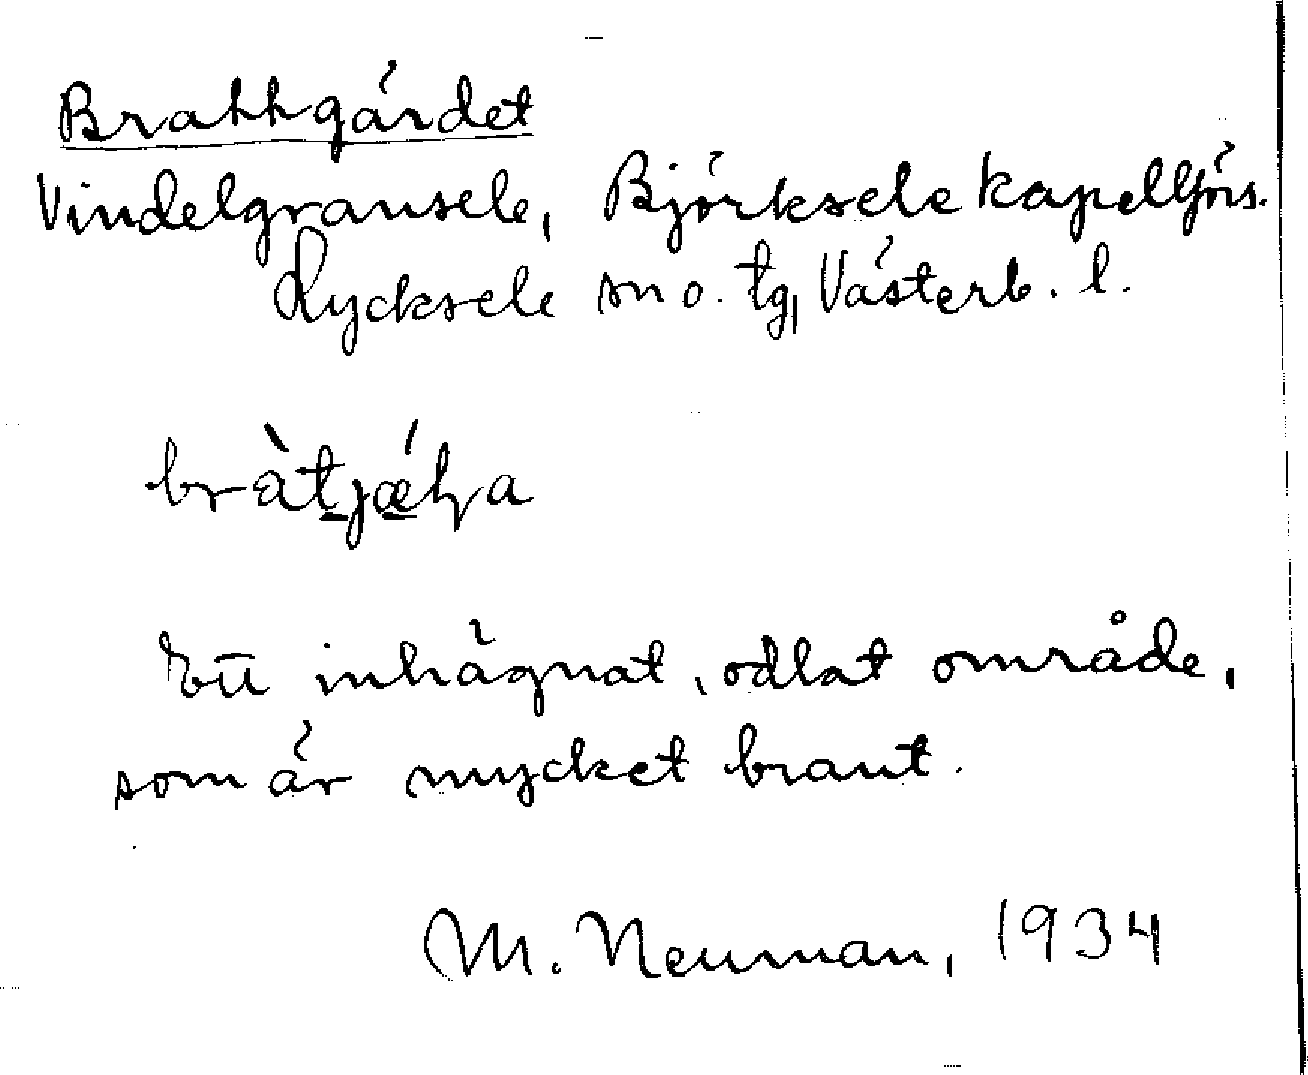 Brattgärdet
Vindelgransele, Björksele kapellförs.
Lycksele sn o. tg, Västerb. l.
Ett inhägnat, odlat område,
som är mycket brant.
M. Neuman, 1934